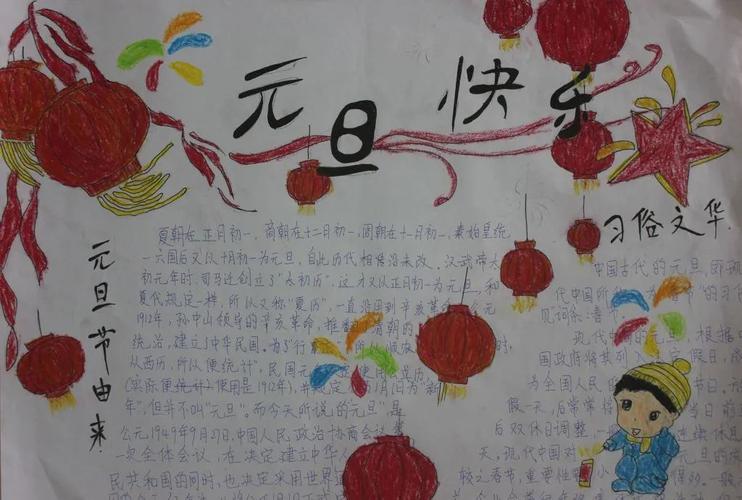 元旦快乐
元旦节由来
夏朝在正月初一,商朝在十二月初一,周朝在十一月初一,秦始皇统
一六国后又从十月初一为元旦,自此历代相传沿未改。汉武帝太
初元年时,司马迁创立了“太初历”,这才又从正月初一为元旦,和
夏代规定一样,所从又称“夏历”,一直沿用到辛亥革命。公元
1912年,孙中山领导的辛亥革命,推翻了清朝的
统治,建立了中华民国。为了“行 所从顺农 时,
从西历,所从便统计”,民国元 使用
(实际便统计使用是1912年),并规定 1月1日为“新
年”,但并不叫“元旦”。而今天所说的元旦”是
公元1949年9月27日,中国人民政治协商会议
一次全体会议,在决定建立中华人
民共和国的同时,也决定采用世界
习俗文华.
中国古代的元旦,即现
代中国所称 的习
见词条:春节
现代中国的元旦,根据中
国政府将其列入 假日,成
为全国人民 节日。
假一天,后常常将 当日前
后双休日调整, 连续休
天,现代中国对
较之春节,重要性 小 得多。一般